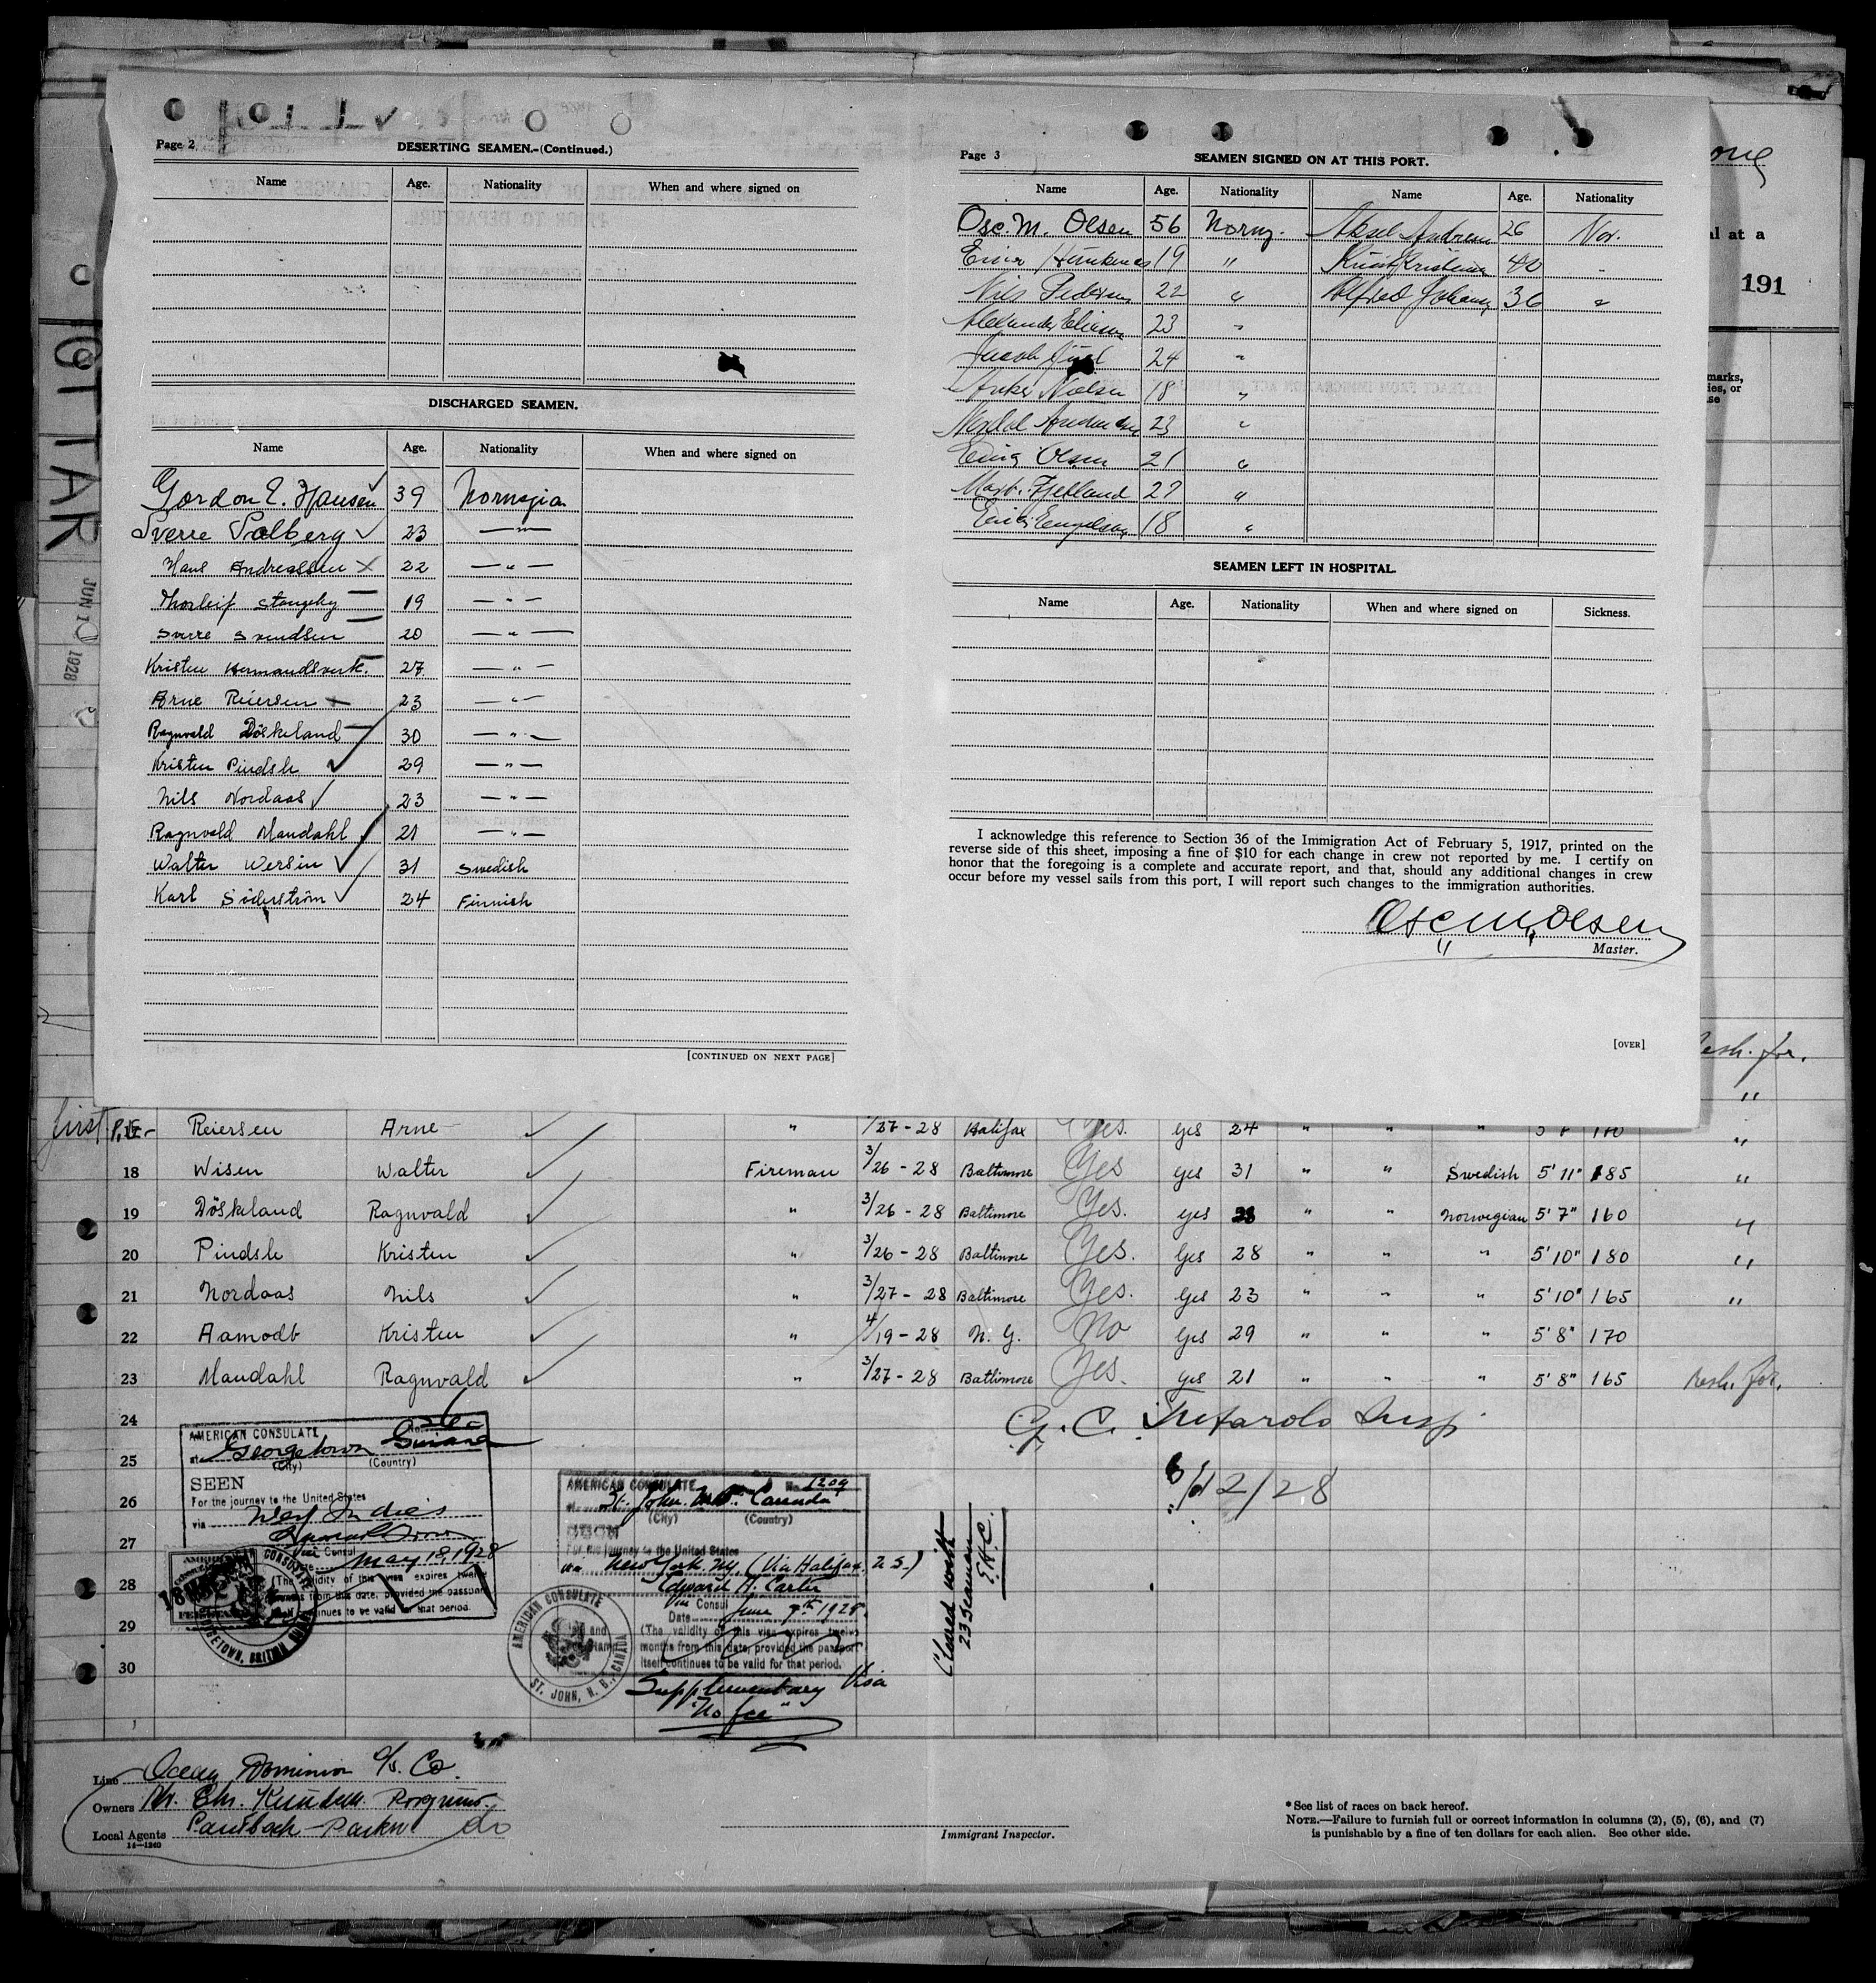 Page 2
DESERTING SEAMEN.-(Continued.)
Name Age. Nationality When and where signed on
DISCHARGED SEAMEN.
Name Age. Nationality When and where signed on
Gordon E. Hansen 39 Norwegian
Sverre Solberg 23 — " —
Hans Andreassen 22 — " —
Thorleif 19 — " —
Sverre Svendsen 20 — " —
Kristen 27 — " —
Arne Reiersen 23 — " —
Ragnvald Döskeland 30 — " —
Kristen Pindsle 29 — " —
Nils Nordaas 23 — " —
Ragnvald Mandahl 21 — " —
Walter Wersin 31 Swedish
Karl Söderström 24 Finnish
[CONTINUED ON NEXT PAGE]
Page 3
SEAMEN SIGNED ON AT THIS PORT.
Name Age. Nationality Name Age. Nationality
Osc. M. Olsen 56 Norwg. Aksel Andresen 26 Nor.
Einar 19 " Knut Kristensen 40 "
Nils Pedersen 22 " Alfred Johansen 36 "
Alexander Eliasen 23 "
Jacob 24 "
Anker Nielsen 18 "
23 "
Olsen 21 "
Fjetland 27 "
18 "
SEAMEN LEFT IN HOSPITAL.
Name Age. Nationality When and where signed on Sickness.
I acknowledge this reference to Section 36 of the Immigration Act of February 5, 1917, printed on the
reverse side of this sheet, imposing a fine of $10 for each change in crew not reported by me. I certify on
honor that the foregoing is a complete and accurate report, and that, should any additional changes in crew
occur before my vessel sails from this port, I will report such changes to the immigration authorities.
Osc. M. Olsen
Master.
[OVER]
191
OTTAR
JUN 10 1928
first
Reiersen Arne " /27-28 Halifax Yes. yes 24 " " "
18 Wisen Walter Fireman 3/26-28 Baltimore Yes yes 31 " " Swedish 5'11" 185 "
19 Döskeland Ragnvald " 3/26-28 Baltimore Yes. yes 28 " " Norwegian 5'7" 160 "
20 Pindsle Kristen " 3/26-28 Baltimore Yes. yes 28 " " " 5'10" 180 "
21 Nordaas Nils " 3/27-28 Baltimore Yes. yes 23 " " " 5'10" 165 "
22 Aamodt Kristen " 4/19-28 N.Y. No yes 29 " " " 5'8" 170
23 Mandahl Ragnvald " 3/27-28 Baltimore Yes. yes 21 " " " 5'8" 165 Resh. for.
24
25
26
27
28
29
30
6/12/28
AMERICAN CONSULATE
at Georgetown Guiana
(City) (Country)
SEEN
For the journey to the United States
via West Indies
Vice Consul
May 18, 1928
(The validity of this visa expires twelve
months from this date, provided the passport
itself continues to be valid for that period.
GEORGETOWN, BRITISH GUIANA
AMERICAN CONSULATE No. 1209
at St. John, N.B. Canada
(City) (Country)
SEEN
For the journey to the United States
via New York N.Y. (Via Halifax, N.S.)
Edward A. Carter
Vice Consul
Date June 9th 1928
(The validity of this visa expires twelve
months from this date, provided the passport
itself continues to be valid for that period.
AMERICAN CONSULATE
ST. JOHN, N. B., CANADA
Supplementary Visa
"No fee"
Cleared with
23 Seamen
E.H.C.
Line Ocean Dominion S/S. Co.
Owners
Local Agents
14—1240
Immigrant Inspector.
*See list of races on back hereof.
NOTE.—Failure to furnish full or correct information in columns (2), (5), (6), and (7)
is punishable by a fine of ten dollars for each alien. See other side.